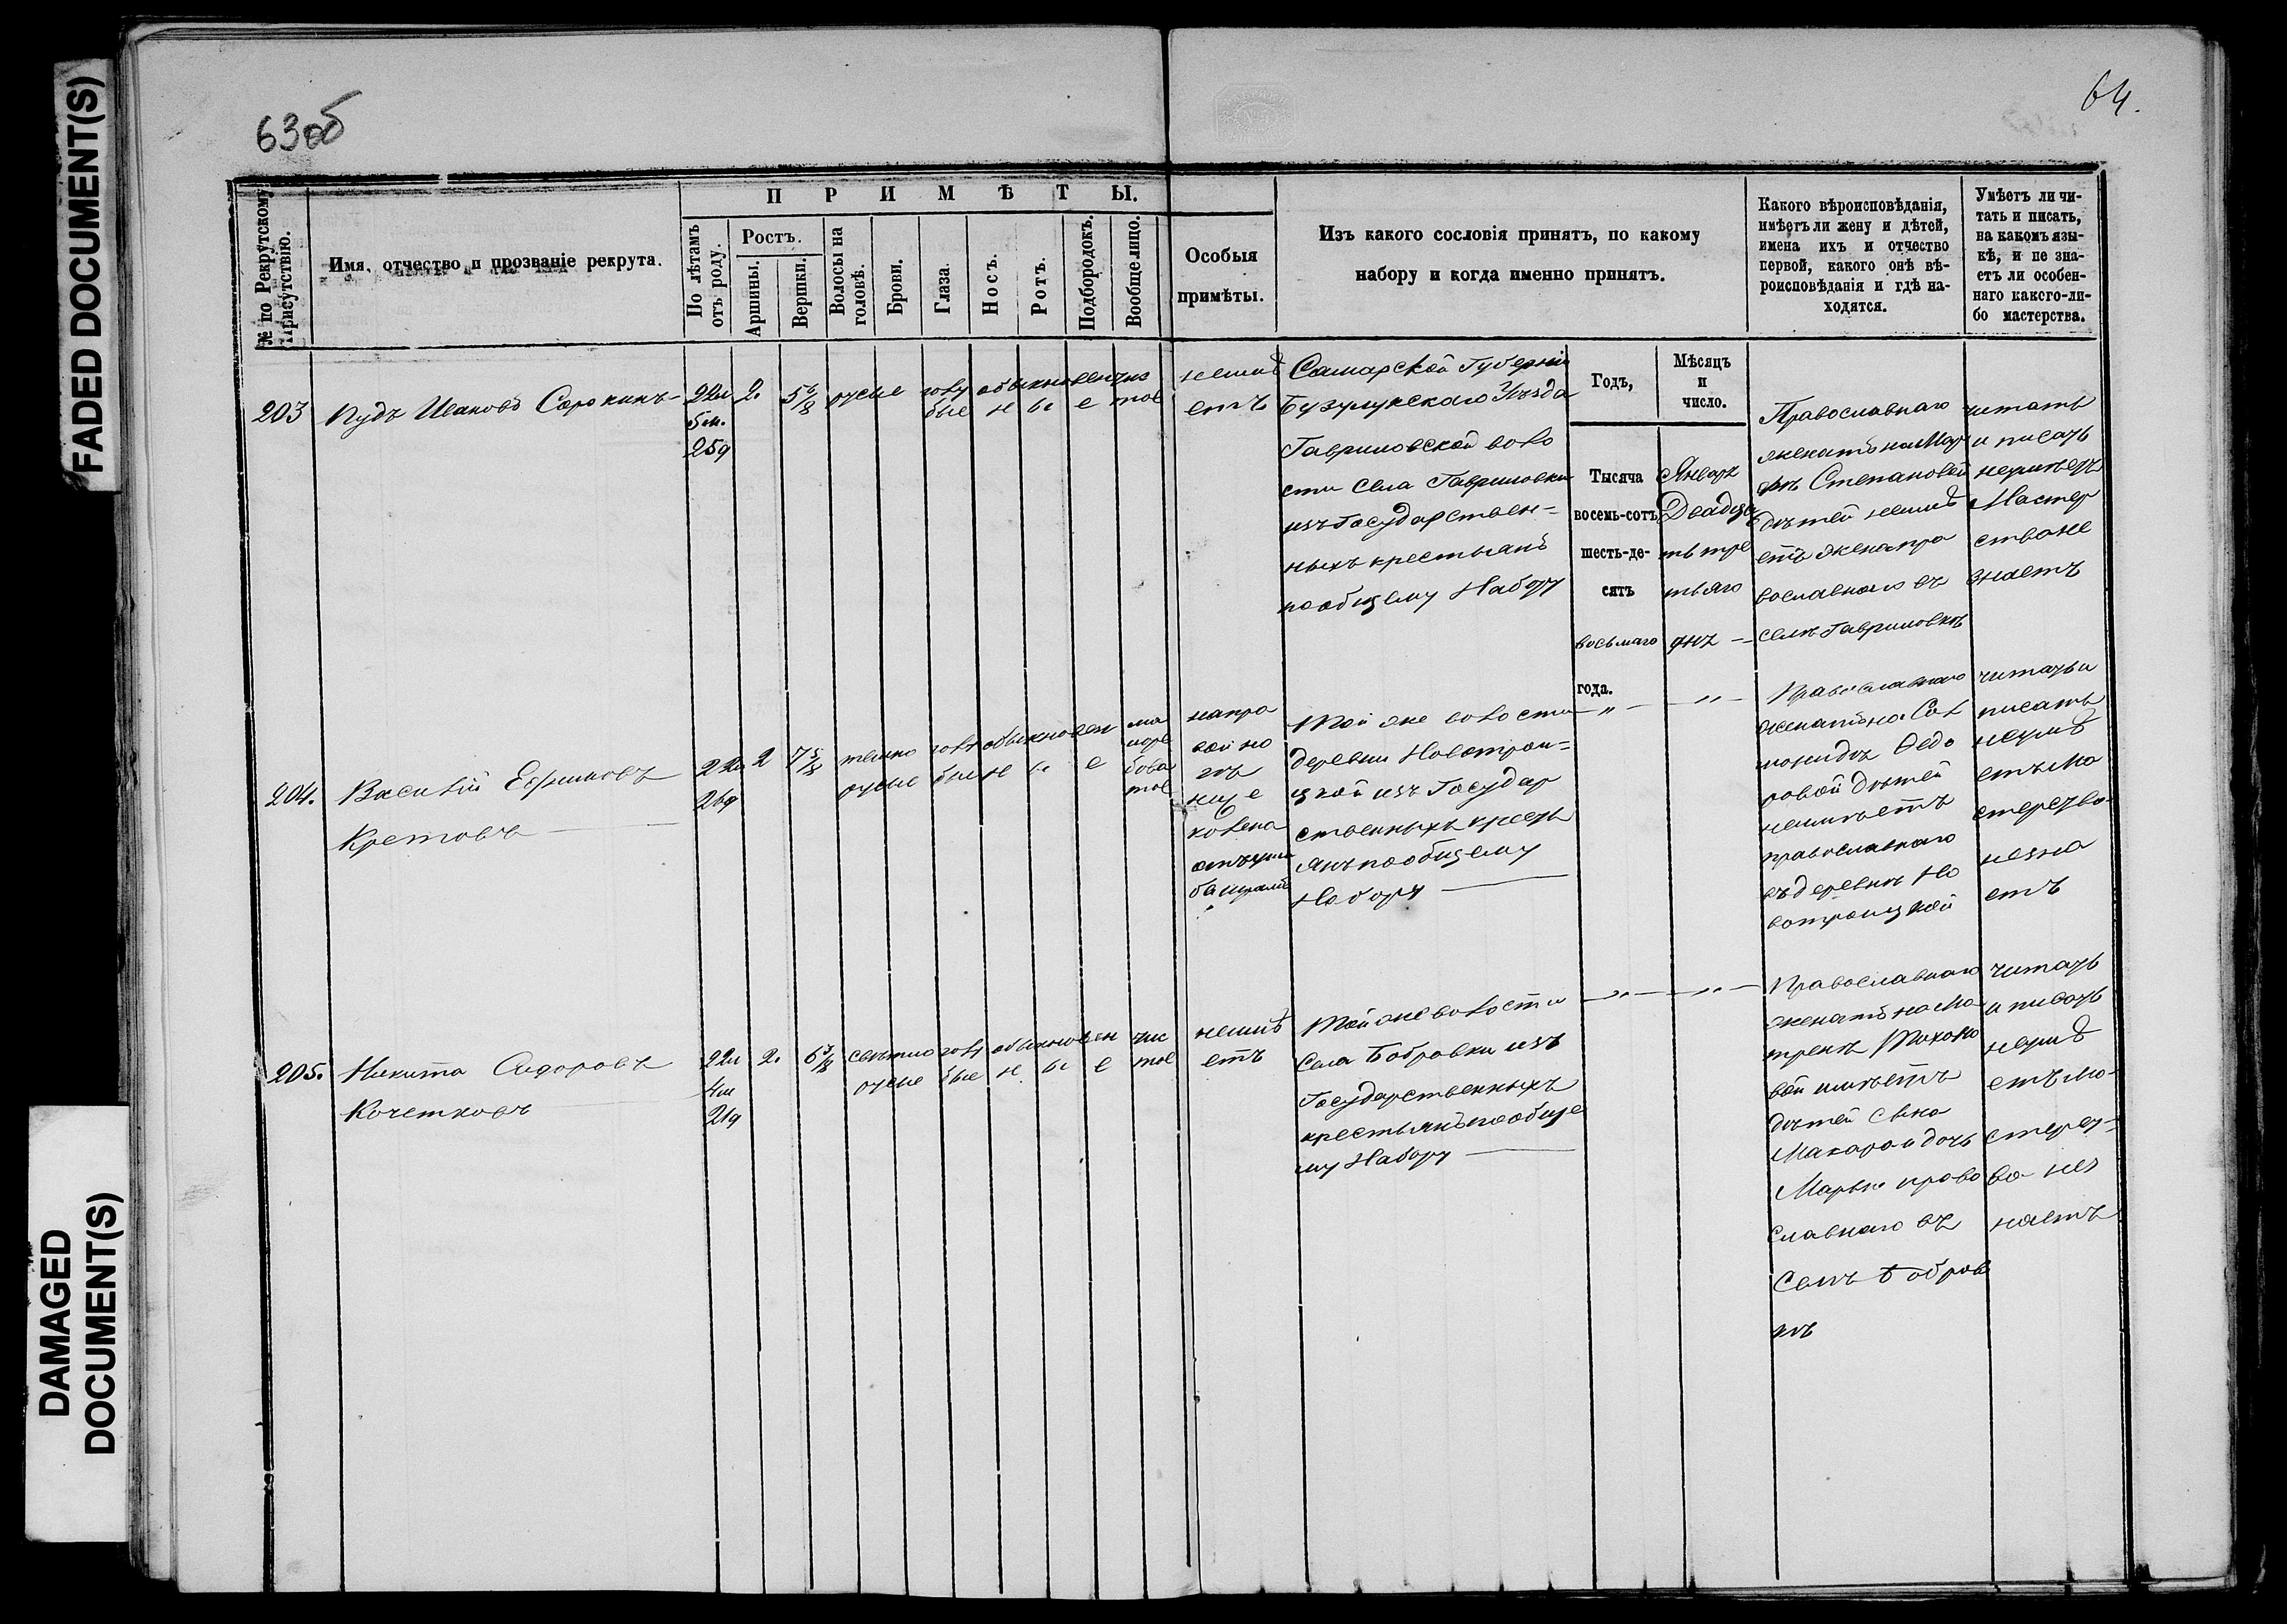 FADED DOCUMENT(S)
DAMAGED
DOCUMENT(S)
63об
64.
№ по Рекрутскому
Присутствію.
Имя, отчество и прозваніе рекрута.
ПРИМѢТЫ.
По лѣтамъ
отъ роду.
Ростъ.
Аршины.
Вершки.
Волосы на
головѣ.
Брови.
Глаза.
Носъ.
Ротъ.
Подбородокъ.
Вообще лицо.
Особыя
примѣты.
Изъ какого сословія принятъ, по какому
набору и когда именно принятъ.
Какого вѣроисповѣданія,
имѣетъ ли жену и дѣтей,
имена ихъ и отчество
первой, какого онѣ вѣ-
роисповѣданія и гдѣ на-
ходятся.
Умѣетъ ли чи-
тать и писать,
на какомъ язы-
кѣ, и не зна-
етъ ли особен-
наго какого-ли-
бо мастерства.
Годъ,
Мѣсяцъ
и
число.
Тысяча
восемь-сотъ
шесть-де-
сятъ
восьмаго
года.
Января
Двадца
ть тре
тьяго
дня —
203 Пудъ Ивановъ Сорокинъ
22л
5м.
25д
2.
5 6/8
русые
голу
бые
обыкновен
н ы е
чис
тое
неимѣ
етъ
Самарской Губерніи
Бузулукскаго Уѣзда
Гавриловской воло
сти села Гавриловки
изъ Государствен-
ныхъ крестьянъ
по общему Набору
Православнаго
женатъ на Мар
фѣ Степановой
дѣтей неимѣ
етъ жена пра
вославнаго въ
селѣ Гавриловкѣ
читать
и писать
неумѣетъ
Мастер
ства не
знаетъ
204. Василій Ефимовъ
Кретовъ
22л
26д
2
7 5/8
темно
русые
голу
бые
обыкновен
н ы е
ма
торе
бова
тое
направо
Той же волости
деревни Новотрои-
цкой изъ Государ
ственныхъ кресть
янъ по общему
Набору
— " — — " —
Православнаго
женатъ на Сол
монидѣ Ѳедо
ровой дѣтей
неимѣетъ
православнаго
въ деревнѣ Но
вотроицкой
читать и
писать
неумѣ
етъ ма
стерства
незна
етъ
205. Никита Сидоровъ
Кочетковъ
22л
4м
21д
2.
6 3/8
свѣтло
русые
голу
бые
обыкновен
н ы е
чис
тое
неимѣ
етъ
Той же волости
Села Бобровки изъ
Государственныхъ
крестьянъ по обще
му Набору
— " — — " —
Православнаго
женатъ на Ма
тренѣ Тихоно
вой имѣетъ
дѣтей сына
Макара и дочь
Марью право
славнаго въ
Селѣ Бобров
кѣ
читать
и писать
неумѣ
етъ ма-
стерст-
ва нез
наетъ